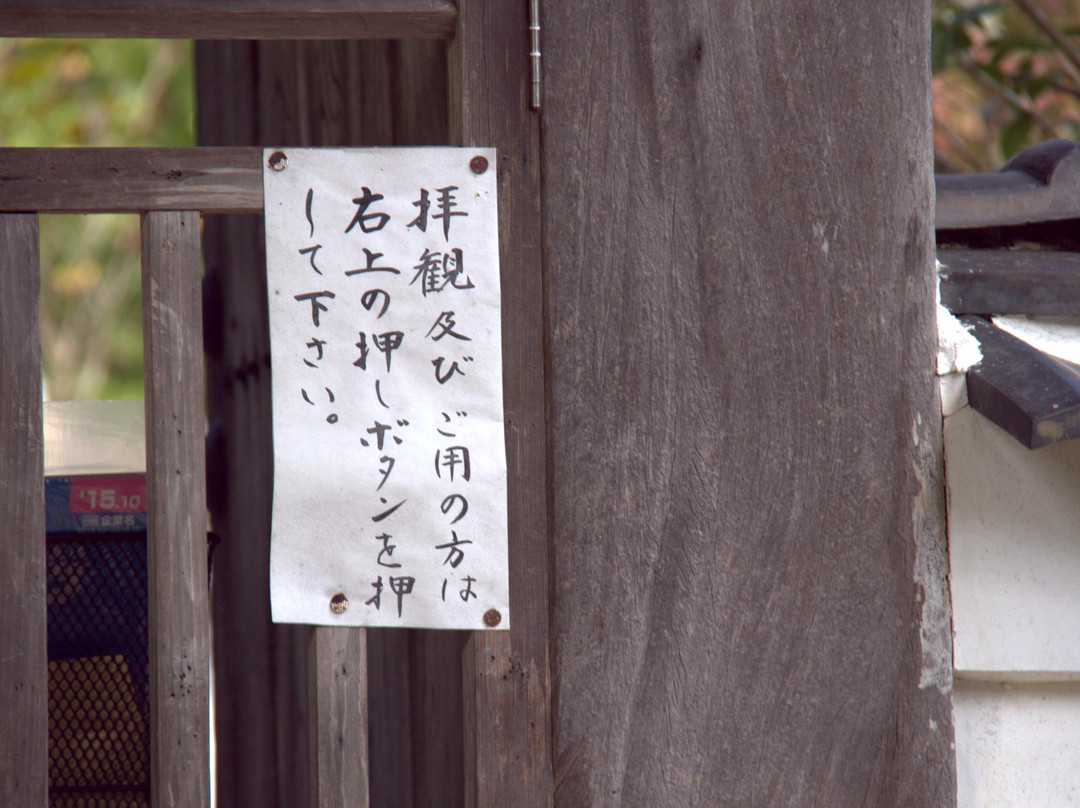 拝観及びご用の方は
右上の押しボタンを押
して下さい。
15.10
企業名